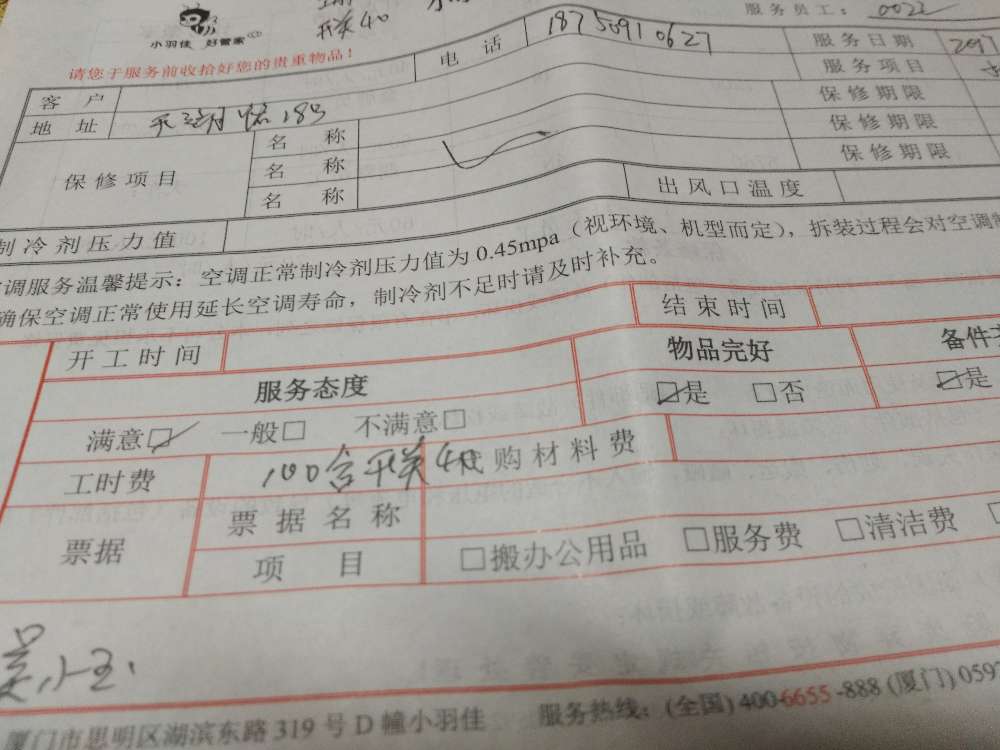 开关40
服务员工： 0022
小羽佳 好管家
请您于服务前收拾好您的贵重物品！
电话 18750910627 服务日期
服务项目
客户
地址 18号 保修期限
保修项目 名称 保修期限
名称 保修期限
名称 出风口温度
制冷剂压力值
空调服务温馨提示：空调正常制冷剂压力值为0.45mpa（视环境、机型而定），拆装过程会对空调制
确保空调正常使用延长空调寿命，制冷剂不足时请及时补充。
开工时间 结束时间
服务态度 物品完好 备件
满意☑ 一般□ 不满意□ ☑是 □否 ☑是
工时费 100含开关40 代购材料费
票据 票据名称
项目 □搬办公用品 □服务费 □清洁费
厦门市思明区湖滨东路319号D幢小羽佳 服务热线：(全国)400-6655-888(厦门)0592